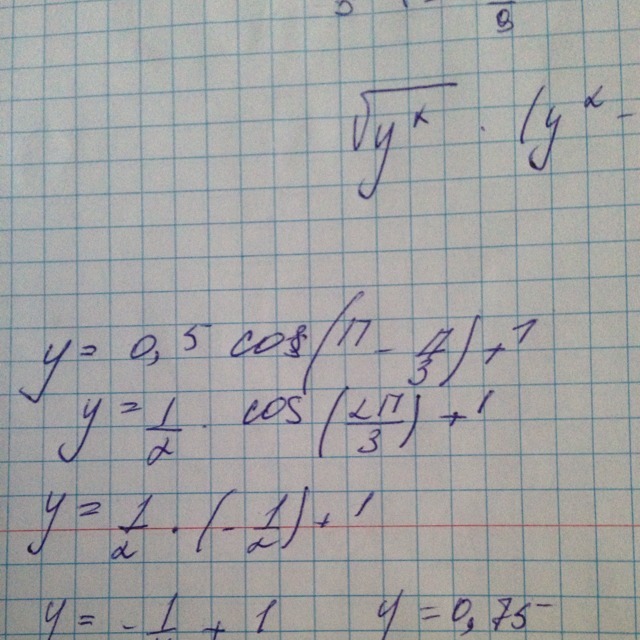 √y^x · (y^2 -
y = 0,5 cos(π - π/3) + 1
y = 1/2 · cos(2π/3) + 1
y = 1/2 · (-1/2) + 1
y = -1/ + 1 y = 0,75